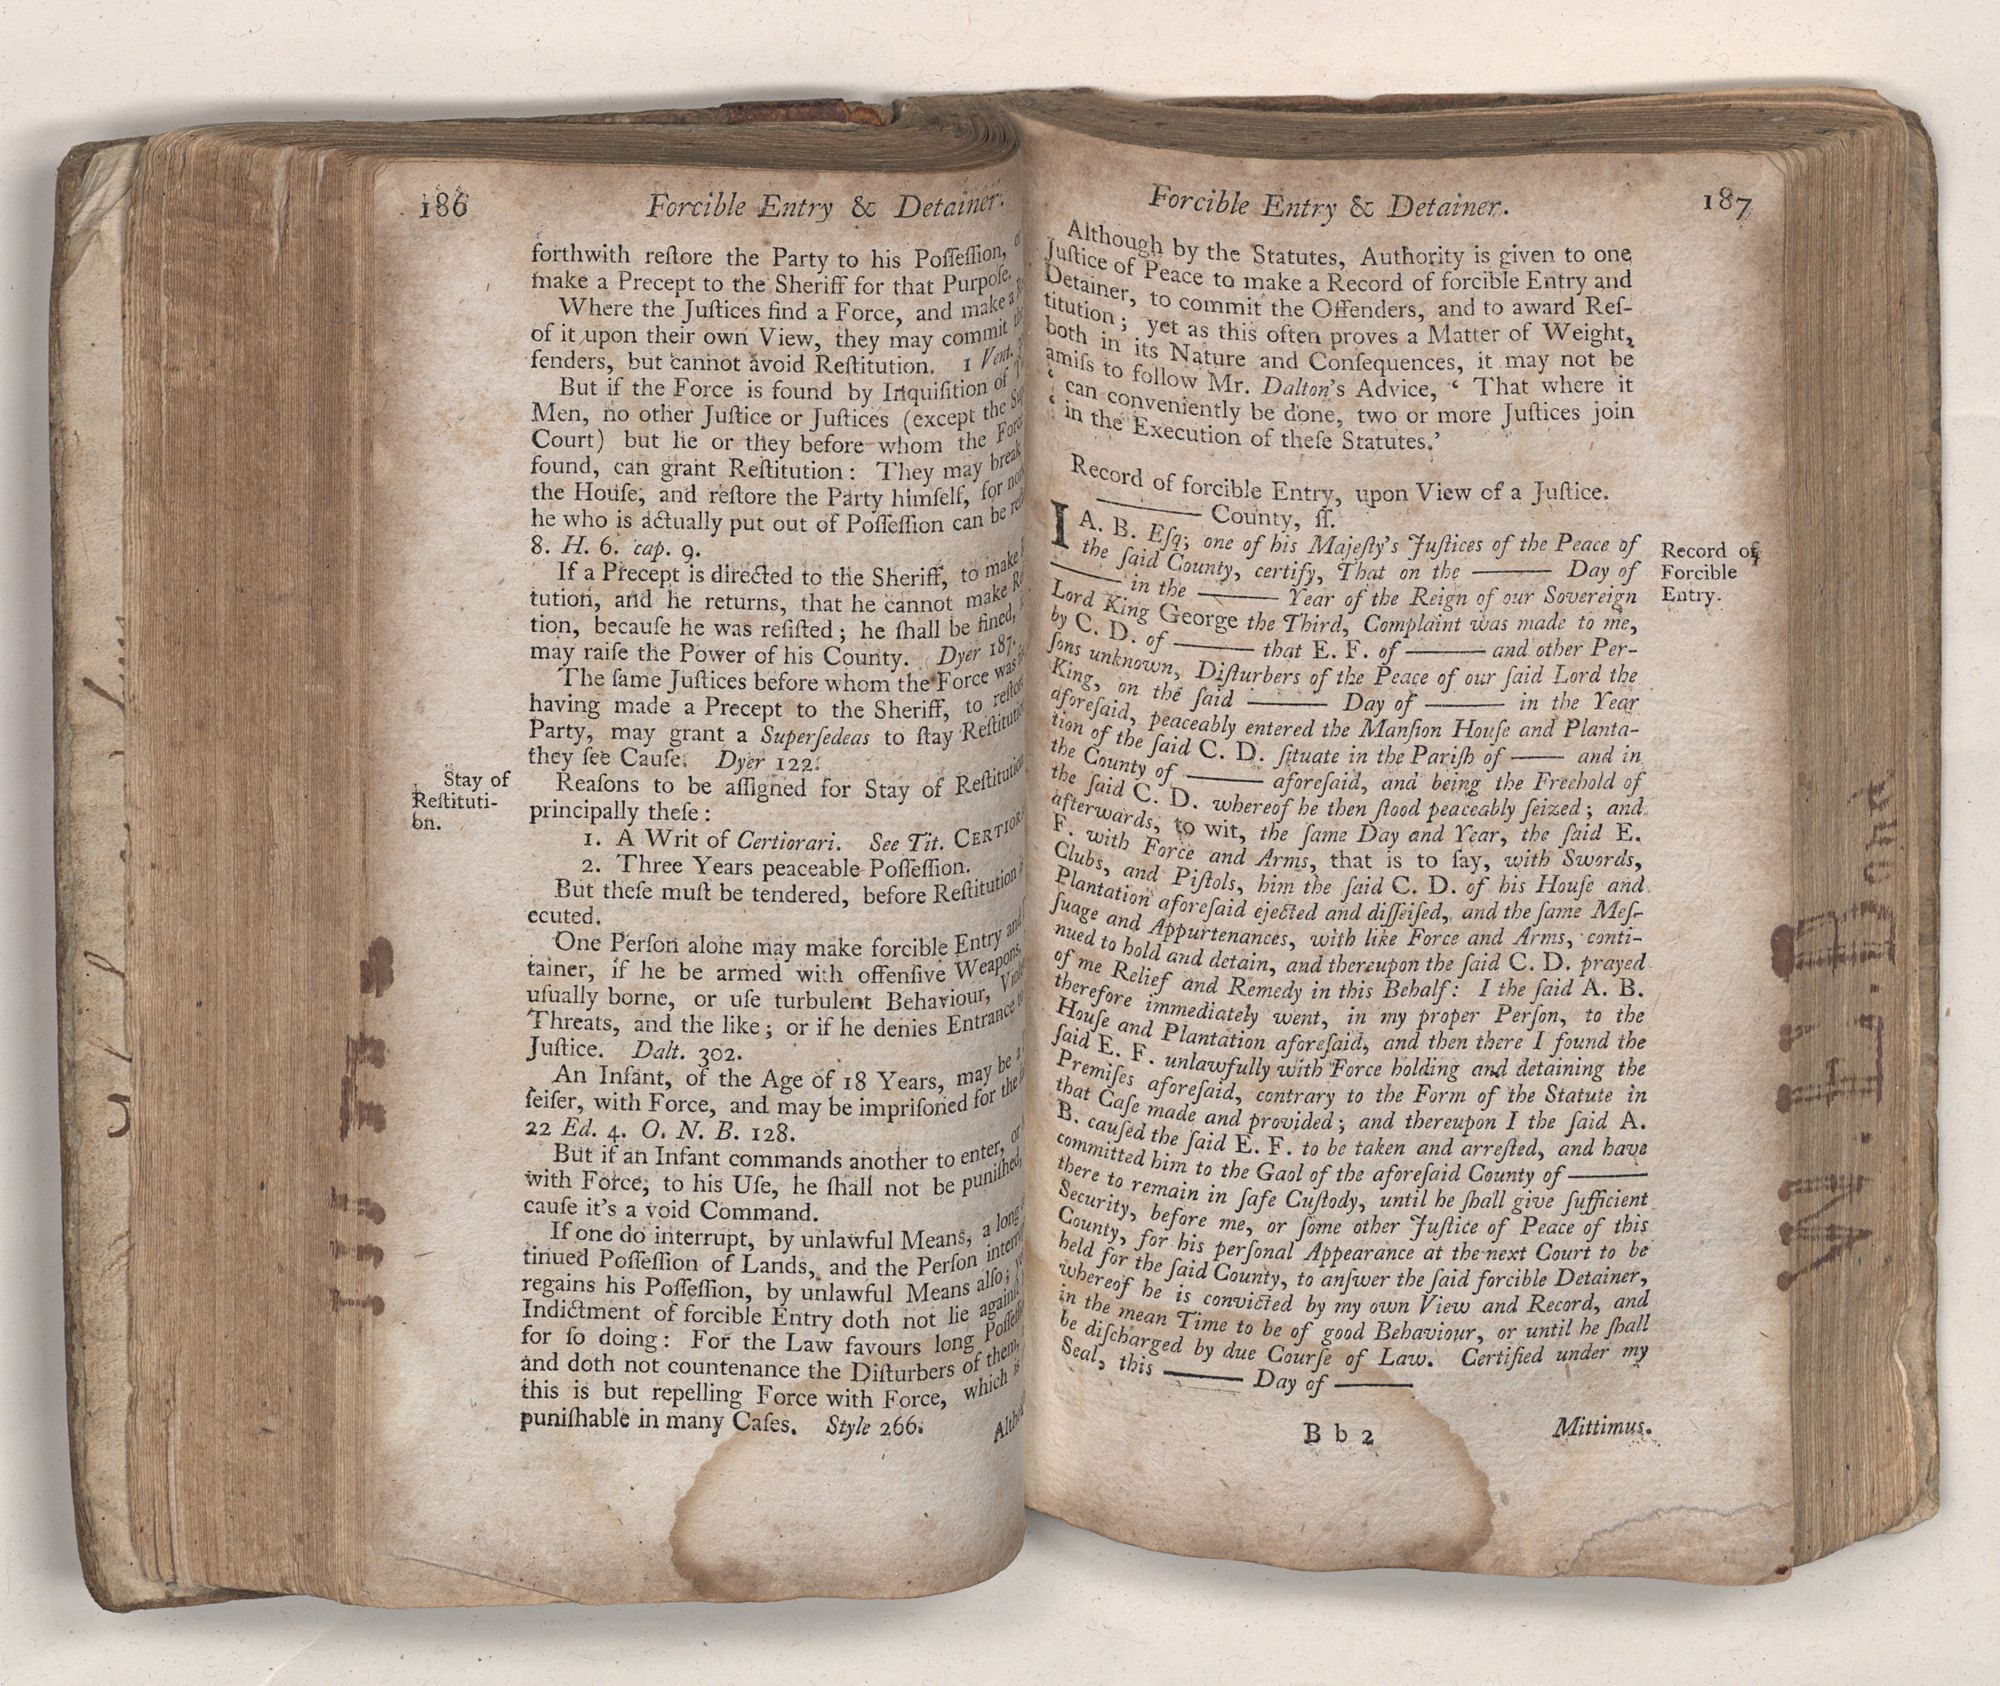 186 Forcible Entry & Detainer.
forthwith reſtore the Party to his Poſſeſſion,
make a Precept to the Sheriff for that Purpoſe.
Where the Juſtices find a Force, and make a
of it upon their own View, they may commit
fenders, but cannot avoid Reſtitution. 1 Vent.
But if the Force is found by Inquiſition of
Men, no other Juſtice or Juſtices (except the
Court) but he or they before whom the
found, can grant Reſtitution: They may break
the Houſe, and reſtore the Party himſelf, for
he who is actually put out of Poſſeſſion can be
8. H. 6. cap. 9.
If a Precept is directed to the Sheriff, to make
tution, and he returns, that he cannot make
tion, becauſe he was reſiſted; he ſhall be fined,
may raiſe the Power of his County. Dyer 187.
The ſame Juſtices before whom the Force was
having made a Precept to the Sheriff, to
Party, may grant a Superſedeas to ſtay
they ſee Cauſe. Dyer 122.
Stay of
Reſtituti-
on.
Reaſons to be aſſigned for Stay of Reſtitution
principally theſe:
1. A Writ of Certiorari. See Tit.
2. Three Years peaceable Poſſeſſion.
But theſe muſt be tendered, before Reſtitution
ecuted.
One Perſon alone may make forcible Entry and
tainer, if he be armed with offenſive Weapons,
uſually borne, or uſe turbulent Behaviour,
Threats, and the like; or if he denies Entrance
Juſtice. Dalt. 302.
An Infant, of the Age of 18 Years, may be a
ſeiſer, with Force, and may be impriſoned for the
22 Ed. 4. O. N. B. 128.
But if an Infant commands another to enter, or
with Force, to his Uſe, he ſhall not be puniſhed,
cauſe it's a void Command.
If one do interrupt, by unlawful Means, a long
tinued Poſſeſſion of Lands, and the Perſon
regains his Poſſeſſion, by unlawful Means alſo;
Indictment of forcible Entry doth not lie
for ſo doing: For the Law favours long
and doth not countenance the Diſturbers of them,
this is but repelling Force with Force, which is
puniſhable in many Caſes. Style 266.
Forcible Entry & Detainer. 187
Although by the Statutes, Authority is given to one
Juſtice of Peace to make a Record of forcible Entry and
Detainer, to commit the Offenders, and to award Reſ-
titution; yet as this often proves a Matter of Weight,
both in its Nature and Conſequences, it may not be
amiſs to follow Mr. Dalton's Advice, ‘ That where it
‘ can conveniently be done, two or more Juſtices join
‘ in the Execution of theſe Statutes.’
Record of forcible Entry, upon View of a Juſtice.
——— County, ſſ.
I A. B. Eſq; one of his Majeſty's Juſtices of the Peace of
the ſaid County, certify, That on the ——— Day of
——— in the ——— Year of the Reign of our Sovereign
Record of
Forcible
Entry.
Lord King George the Third, Complaint was made to me,
by C. D. of ——— that E. F. of ——— and other Per-
ſons unknown, Diſturbers of the Peace of our ſaid Lord the
King, on the ſaid ——— Day of ——— in the Year
aforeſaid, peaceably entered the Manſion Houſe and Planta-
tion of the ſaid C. D. ſituate in the Pariſh of —— and in
the County of ——— aforeſaid, and being the Freehold of
the ſaid C. D. whereof he then ſtood peaceably ſeized; and
afterwards, to wit, the ſame Day and Year, the ſaid E.
F. with Force and Arms, that is to ſay, with Swords,
Clubs, and Piſtols, him the ſaid C. D. of his Houſe and
Plantation aforeſaid ejected and diſſeiſed, and the ſame Meſ-
ſuage and Appurtenances, with like Force and Arms, conti-
nued to hold and detain, and thereupon the ſaid C. D. prayed
of me Relief and Remedy in this Behalf: I the ſaid A. B.
therefore immediately went, in my proper Perſon, to the
Houſe and Plantation aforeſaid, and then there I found the
ſaid E. F. unlawfully with Force holding and detaining the
Premiſes aforeſaid, contrary to the Form of the Statute in
that Caſe made and provided; and thereupon I the ſaid A.
B. cauſed the ſaid E. F. to be taken and arreſted, and have
committed him to the Gaol of the aforeſaid County of ———
there to remain in ſafe Cuſtody, until he ſhall give ſufficient
Security, before me, or ſome other Juſtice of Peace of this
County, for his perſonal Appearance at the next Court to be
held for the ſaid County, to anſwer the ſaid forcible Detainer,
whereof he is convicted by my own View and Record, and
in the mean Time to be of good Behaviour, or until he ſhall
be diſcharged by due Courſe of Law. Certified under my
Seal, this ——— Day of ———
B b 2 Mittimus.